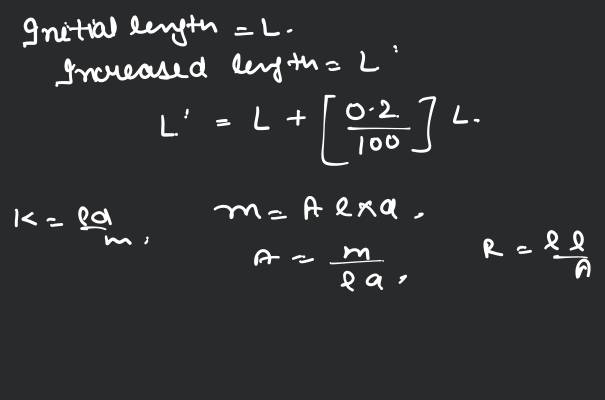 Initial length = L.
Increased length = L'
L' = L + [0.2/100] L.
K = ρd/m,
m = A l × d,
A = m/ld,
R = ρl/A